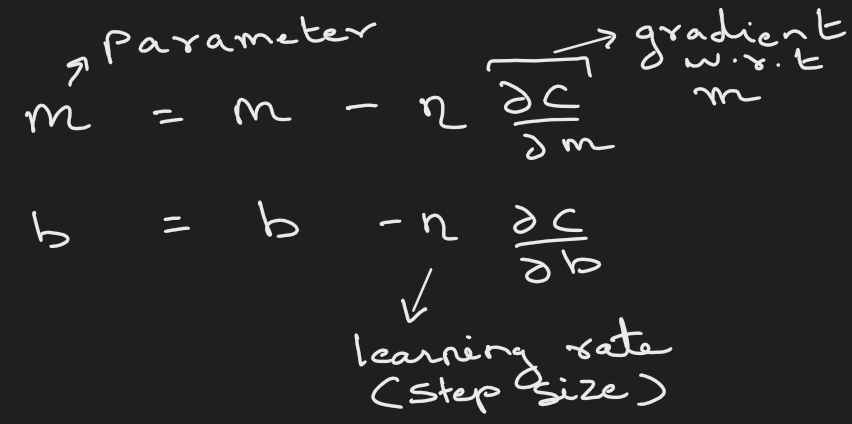 Parameter
gradient
w.r.t
m
m = m - η ∂C/∂m
b = b - η ∂C/∂b
learning rate
(step size)